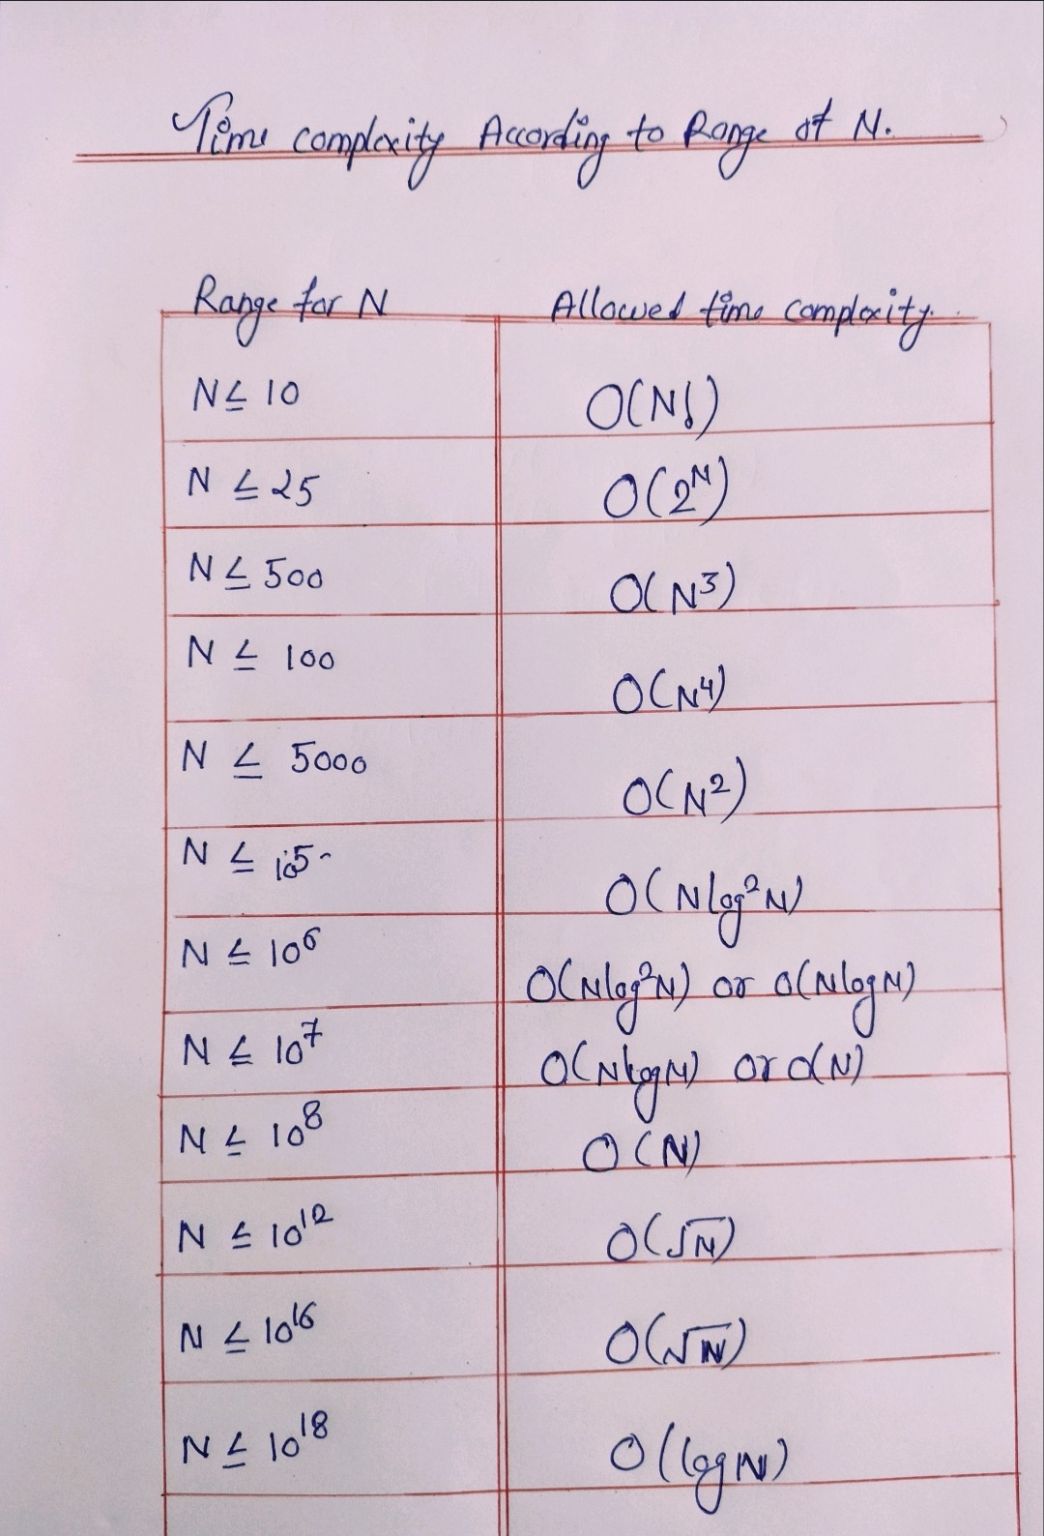 Time complexity According to Range of N.
Range for N Allowed time complexity.
N ≤ 10 O(N!)
N ≤ 25 O(2^N)
N ≤ 500 O(N³)
N ≤ 100 O(N⁴)
N ≤ 5000 O(N²)
N ≤ 10⁵ O(N log²N)
N ≤ 10⁶ O(N log²N) or O(N log N)
N ≤ 10⁷ O(N log N) or O(N)
N ≤ 10⁸ O(N)
N ≤ 10¹² O(√N)
N ≤ 10¹⁶ O(√N)
N ≤ 10¹⁸ O(log N)